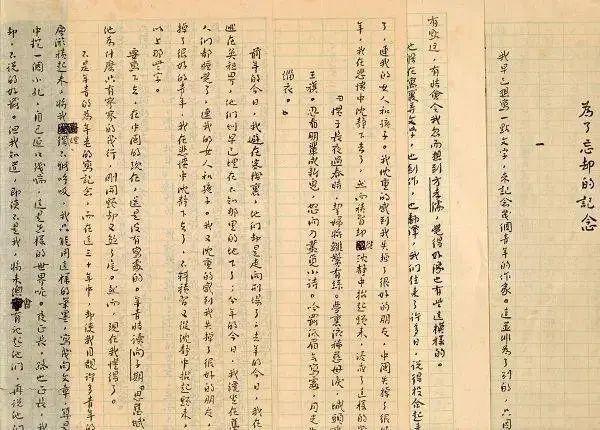 為了忘卻的記念
一
我早已想寫一點文字，來記念幾個青年的作家。這並非為了別的，只因
有點迂，有時會令我忽而想到方孝孺，覺得好像也有些這模樣的。
他躲在寓裏弄文學，也創作，也翻譯，我們往來了許多日，說得投合起來
了，連我的女人和孩子。我沈重的感到我失掉了很好的朋友，中國失掉了很好
年，我在悲憤中沈靜下去了，然而積習卻從沈靜中抬起頭來，湊成了這樣的
慣於長夜過春時，挈婦將雛鬢有絲。夢裏依稀慈母淚，城頭
王旗。忍看朋輩成新鬼，怒向刀叢覓小詩。吟罷低眉無寫處，月光
緇衣。
前年的今日，我避在客棧裏，他們卻是走向刑場了；去年的今日，我在
逃在英租界，他們則早已埋在不知那裏的地下了；今年的今日，我纔坐在舊
人們都睡覺了，連我的女人和孩子。我又沈重的感到我失掉了很好的朋友，
掉了很好的青年，我在悲憤中沈靜下去了，不料積習又從沈靜中抬起頭來，
以上那些字。
要寫下去，在中國的現在，還是沒有寫處的。年青時讀向子期思舊賦
他為什麼只有寥寥的幾行，剛開頭卻又煞了尾。然而，現在我懂得了。
不是年青的為年老的寫記念，而在這三十年中，卻使我目睹許多青年的
層層淤積起來，將我埋得不能呼吸，我只能用這樣的筆墨，寫幾句文章，算是
中挖一個小孔，自己延口殘喘，這是怎樣的世界呢。夜正長，路也正長，我
卻，不說的好罷。但我知道，即使不是我，將來總會有記起他們，再說他們